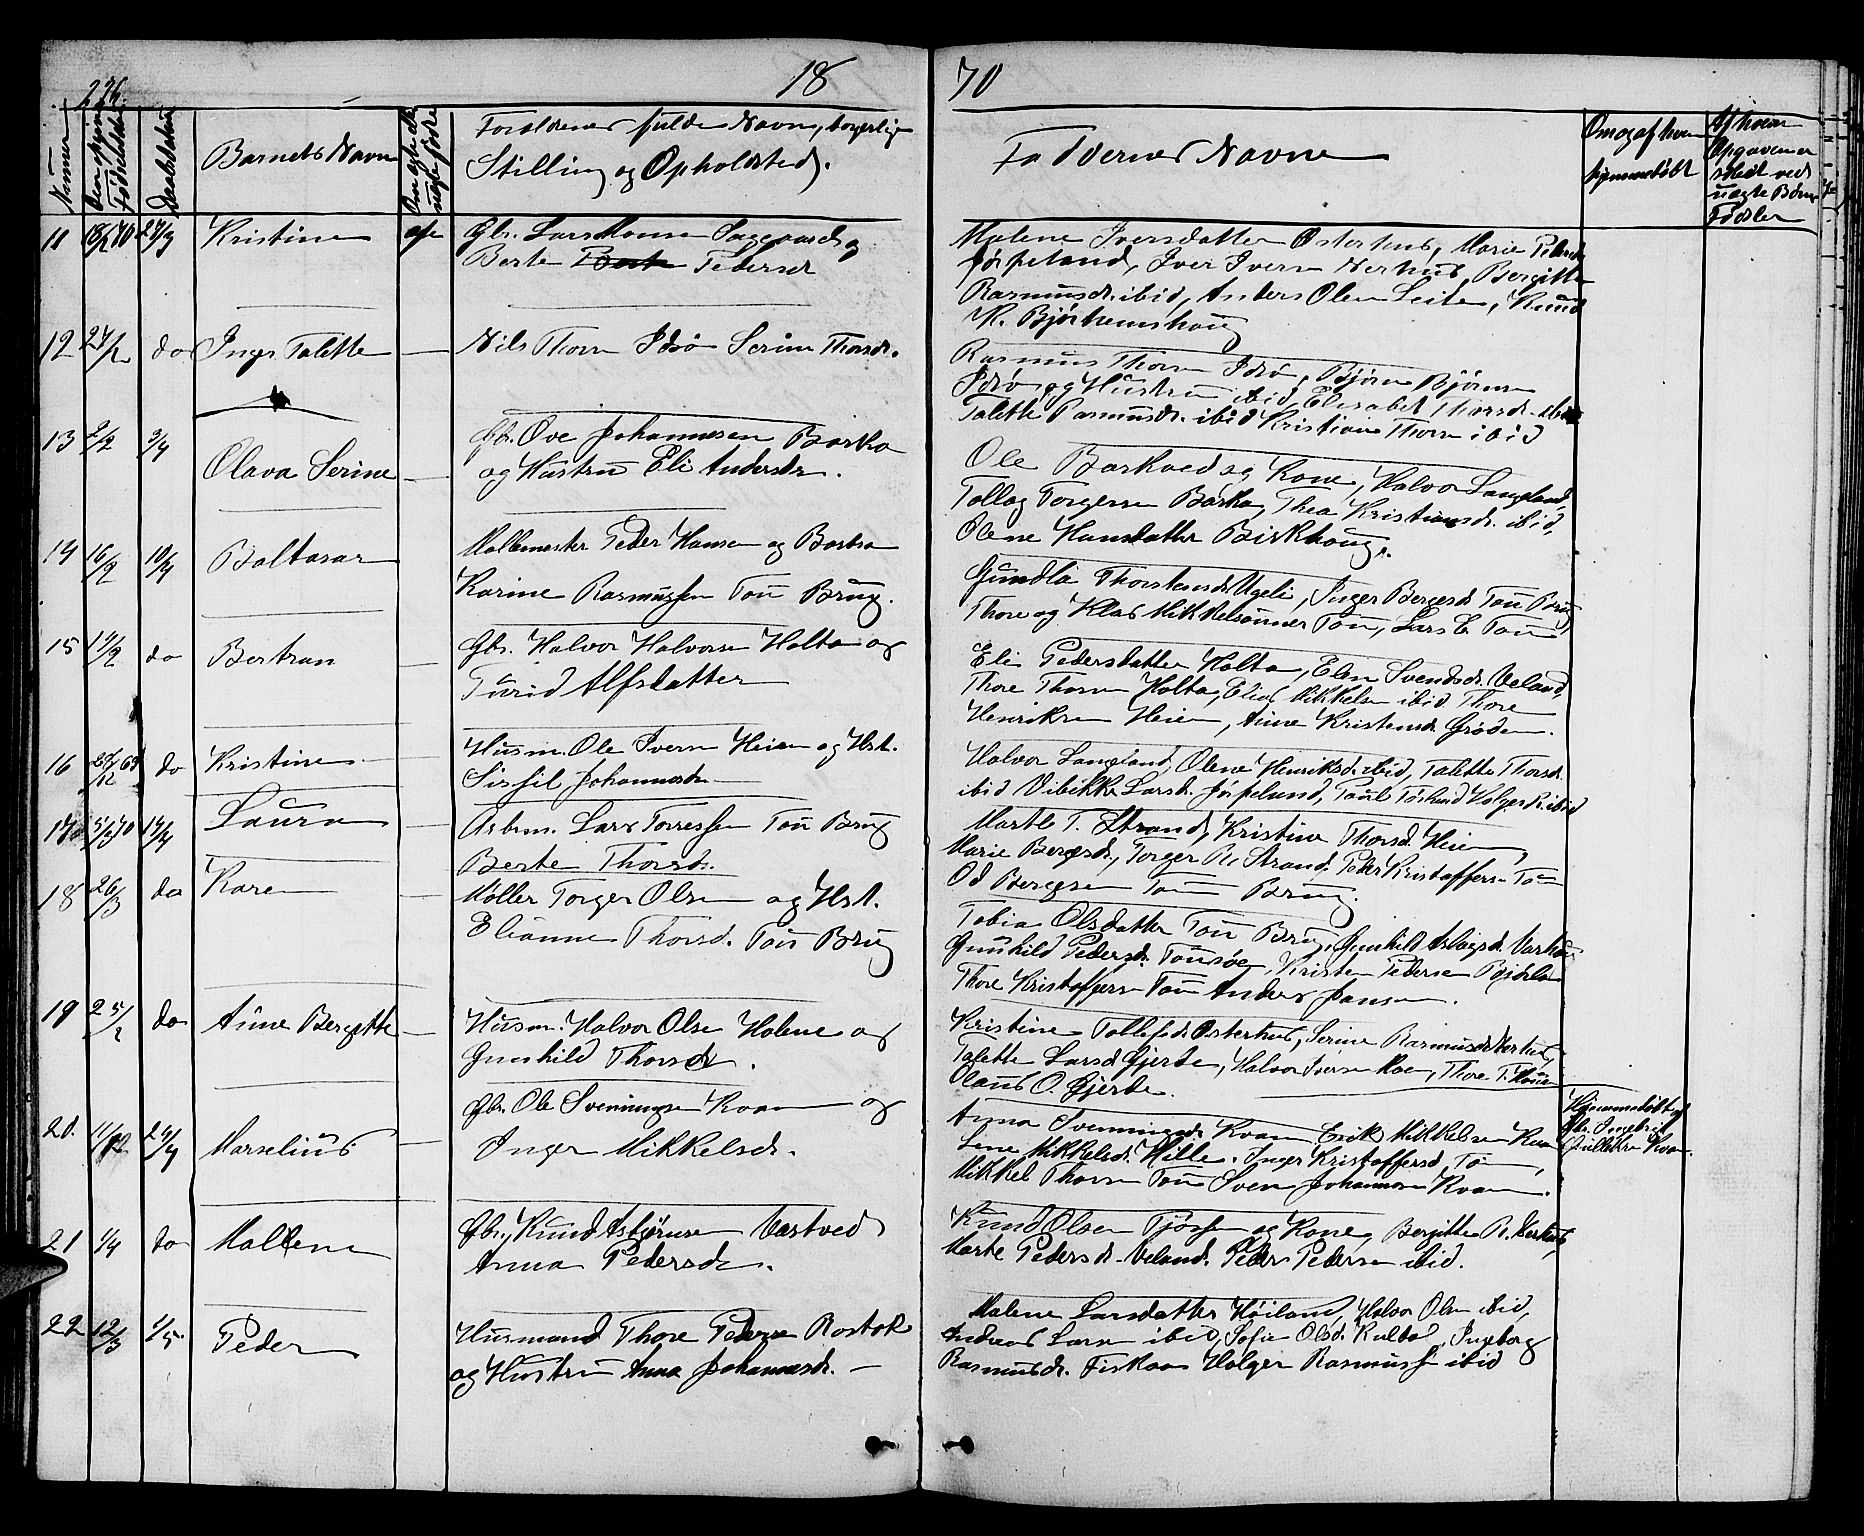 226.
18
70
Nummer
Fødselsdatum
Daabsdatum
Barnets Navn
Om ægte eller uægte födte
Forældrenes fulde Navn, borgerlige
Stilling og Opholdsted.
Faddernes Navne
Om og af hvem
hjemmedöbt
Af hvem
Opgaven er
skeet ved
uægte Börns
Födsler
11 18/2 70 27/3 Kristine ægte
Gbr. Lars Hansen Sagegaard og
Berte Pedersdr
Malene Iversdatter Østerhus, Marie Pedersdr
Jörpeland, Iver Iversen Nerhus, Bergitte
Rasmusdr. ibid, Anders Olsen Leite, Knud
K. Bjørheimshoug
12 27/2 do Inger Talette —
Nils Thorsen Idsö Serine Thorsdr.
Rasmus Thorsen Idsö, Bjørn Bjørnsen
Idsö og Hustru ibid, Elisabet Thorsdr. ibid
Talette Rasmusdr. ibid Kristiane Thorsen ibid
13 2/2 3/4 Olava Serine —
Gbr. Ove Johannesen Barka
og Hustru Eli Andersdr.
Ole Barkved og Kone, Halvor Langeland,
Tollag Torgersen Barka, Thea Kristiansdr. ibid,
Olene Hansdatter Birkhoug.
14 16/2 10/4 Baltasar
Møllemester Peder Hansen og Barbra
Karine Rasmussen Tou Brug.
Gundla Thorstensdr. Ugeli, Inger Bergesdr Tou Brug
Thore og Klas Mikkelsønner Tou, Lars E. Tou
15 17/2 do Bertran —
Gbr. Halvor Halvorsen Holta og
Turid Alfsdatter
Eli Pedersdatter Holta, Elen Svendsdr. Veland,
Thore Thorsen Holta, Elias Mikkelsen ibid Thore
Henriksen Heien, Anne Kristensdr. Gröden.
16 28/12 69 do Kristine
Husm. Ole Iversen Heien og Hst.
Sissil Johannesdr
Halvor Langeland, Olene Henriksdr. ibid, Talette Thorsdr.
ibid Vibikke Larsdr. Jörpelund, Holger R. ibid
17 5/3 70 17/4 Laura —
Arbm. Lars Torressen Tou Brug
Berte Thorsdr.
Marte T. Strand, Kristine Thorsd. Heien,
Marie Bergesd., Torger R. Strand, Peder Kristoffersen Tou
Od Bergesen Tou Brug.
18 26/3 do Karen —
Møller Torger Olsen og Hst.
Elianne Thorsd. Tou Brug
Tobia Olsdatter Tou Brug, Gunhild Aslagsd.
Gunhild Pedersdr. Tousøe, Kristen Pedersen
Thore Kristoffersen Tou Anders Jansen.
19 25/2 do Anne Bergitte —
Husm. Halvor Olsen Holene og
Gunhild Thorsdr.
Kristine Tollefsdr. Østerhus, Serine Rasmusdr. Nerhus,
Talette Larsd. Gjerde, Halvor Iversen Moe, Thore T.
Olaus O. Gjerde.
20. 11/12 24/4 Marselius —
Gbr. Ole Svenningsen Kvam og
Inger Mikkelsdr.
Anna Svenningsdr. Kvam Erik Mikkelsen Kvam
Lene Mikkelsdr. Hille. Inger Kristoffersd. Tou,
Mikkel Thorsen Tou Sven Johannesen Kvam.
Hjemmedöbt af
Gbr. Ingebret
Kvam.
21 1/4 do Mallene
Gbr. Knud Asbjørnsen Vastved
Anna Pedersdr.
Knud Olsen Tjøssen og Kone, Bergitte R. Nerhus,
Marte Pedersdr. Veland. Peder Pedersen ibid.
22 12/3 1/5 Peder
Husmand Thore Pedersen Rostok
og Hustru Anna Johannesdr. —
Malene Larsdatter Høiland, Halvor Olsen ibid,
Andreas Larsen ibid, Sofie Olsd. Kultöl, Ingeborg
Rasmusdr. Fiskaa Holger Rasmussen ibid